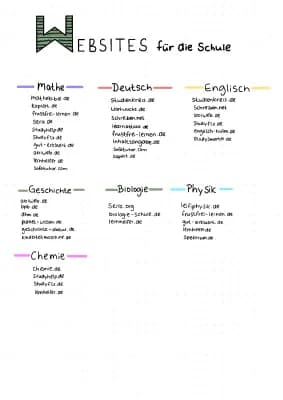 WEBSITES für die Schule
Mathe
mathebibel.de
kapiert.de
frustfrei-lernen.de
Serlo.de
Studyhelp.de
StudyFlix.de
gut-erklaert.de
abiweb.de
lernhelfer.de
Sofatutor.com
Deutsch
Studienkreis.de
Wortwuchs.de
Schreiben.net
learnattack.de
frustfrei-lernen.de
Inhaltsangabe.de
Sofatutor.com
kapiert.de
Englisch
Studienkreis.de
Schreiben.net
abiweb.de
StudyFlix.de
englisch-hilfen.de
Studysmarter.de
Geschichte
abiweb.de
bpb.de
dhm.de
planet-wissen.de
geschichte-abitur.de
kinderzeitmaschine.de
Biologie
Serlo.org
biologie-schule.de
lernhelfer.de
Physik
leifiphysik.de
frustfrei-lernen.de
gut-erklaert.de
lernhelfer.de
Spektrum.de
Chemie
Chemie.de
Studyhelp.de
StudyFlix.de
lernhelfer.de